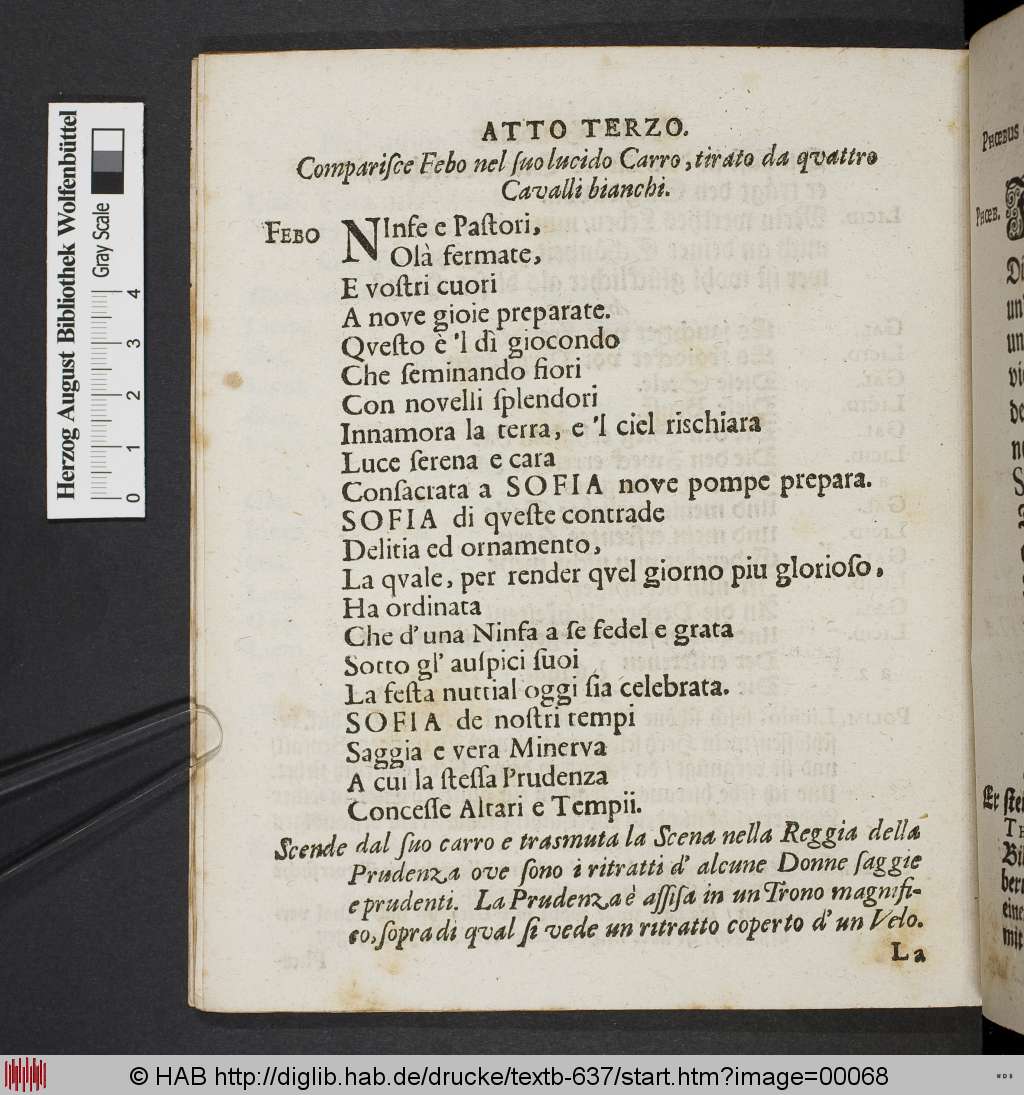 ATTO TERZO.
Compariſce Febo nel ſuo lucido Carro, tirato da qvattro
Cavalli bianchi.
FEBO NInfe e Paſtori,
Olà fermate,
E voſtri cuori
A nove gioie preparate.
Qveſto è 'l dì giocondo
Che ſeminando fiori
Con novelli ſplendori
Innamora la terra, e 'l ciel riſchiara
Luce ſerena e cara
Conſacrata a SOFIA nove pompe prepara.
SOFIA di qveſte contrade
Delitia ed ornamento,
La qvale, per render qvel giorno piu glorioſo,
Ha ordinata
Che d'una Ninfa a ſe fedel e grata
Sotto gl' auſpici ſuoi
La feſta nuttial oggi ſia celebrata.
SOFIA de noſtri tempi
Saggia e vera Minerva
A cui la ſteſſa Prudenza
Conceſſe Altari e Tempii.
Scende dal ſuo carro e trasmuta la Scena nella Reggia della
Prudenza ove ſono i ritratti d' alcune Donne ſaggie
e prudenti. La Prudenza è aſſiſa in un Trono magnifi-
co, ſopra di qval ſi vede un ritratto coperto d' un Velo.
La
PHŒBUS
PHŒB.
Herzog August Bibliothek Wolfenbüttel
Gray Scale
0 1 2 3 4
© HAB http://diglib.hab.de/drucke/textb-637/start.htm?image=00068